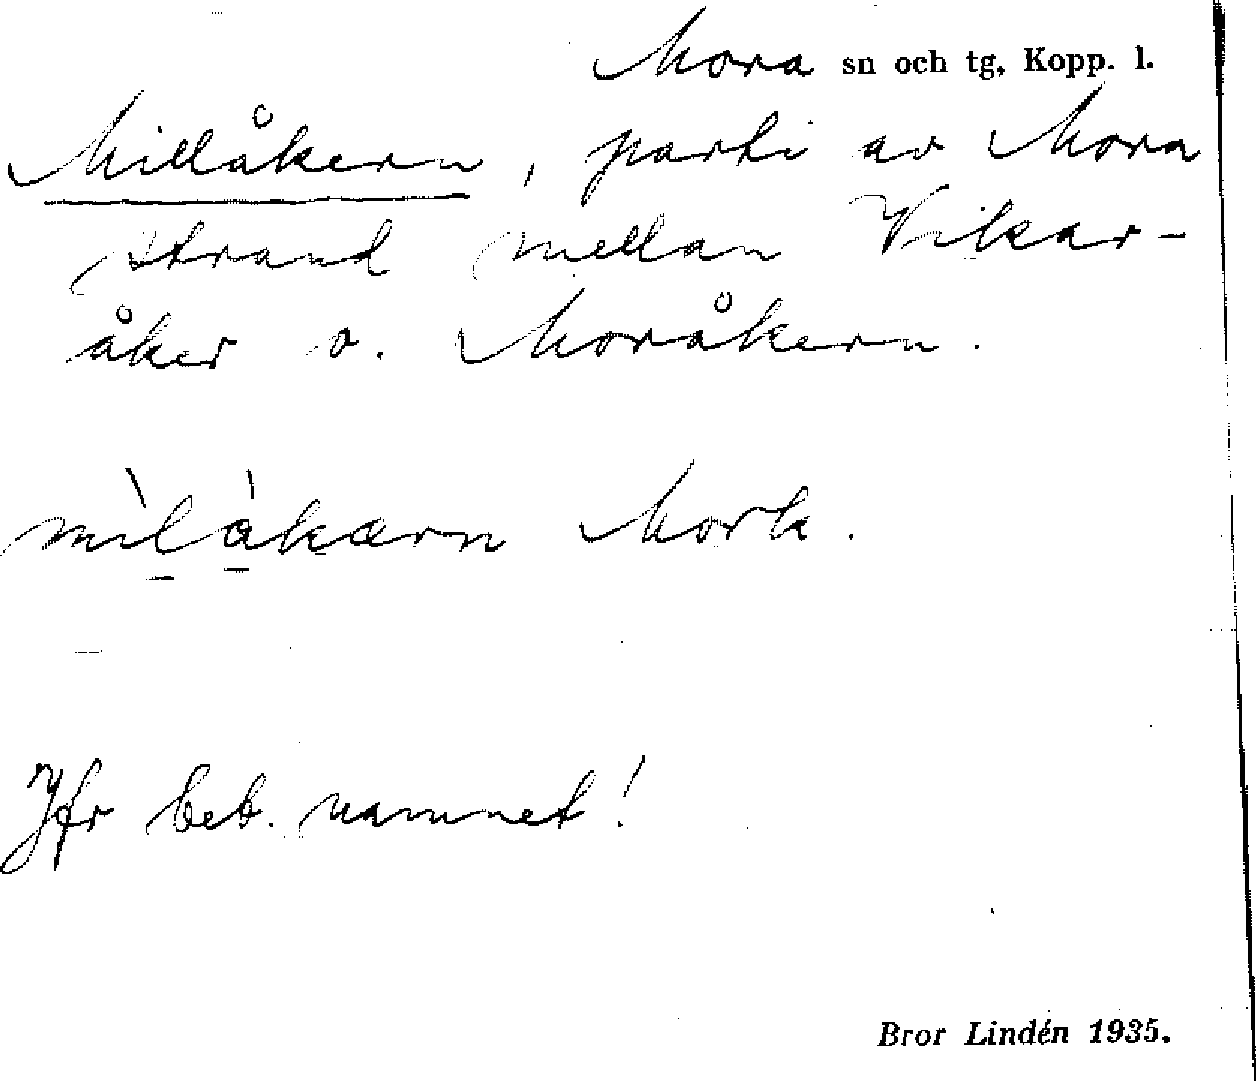 Mora sn och tg, Kopp. l.
Millåkern, parti av Mora
strand mellan Vikar-
åker o. Moråkern.
mìlàkærn Mork.
Jfr beb. namnet!
Bror Lindén 1935.